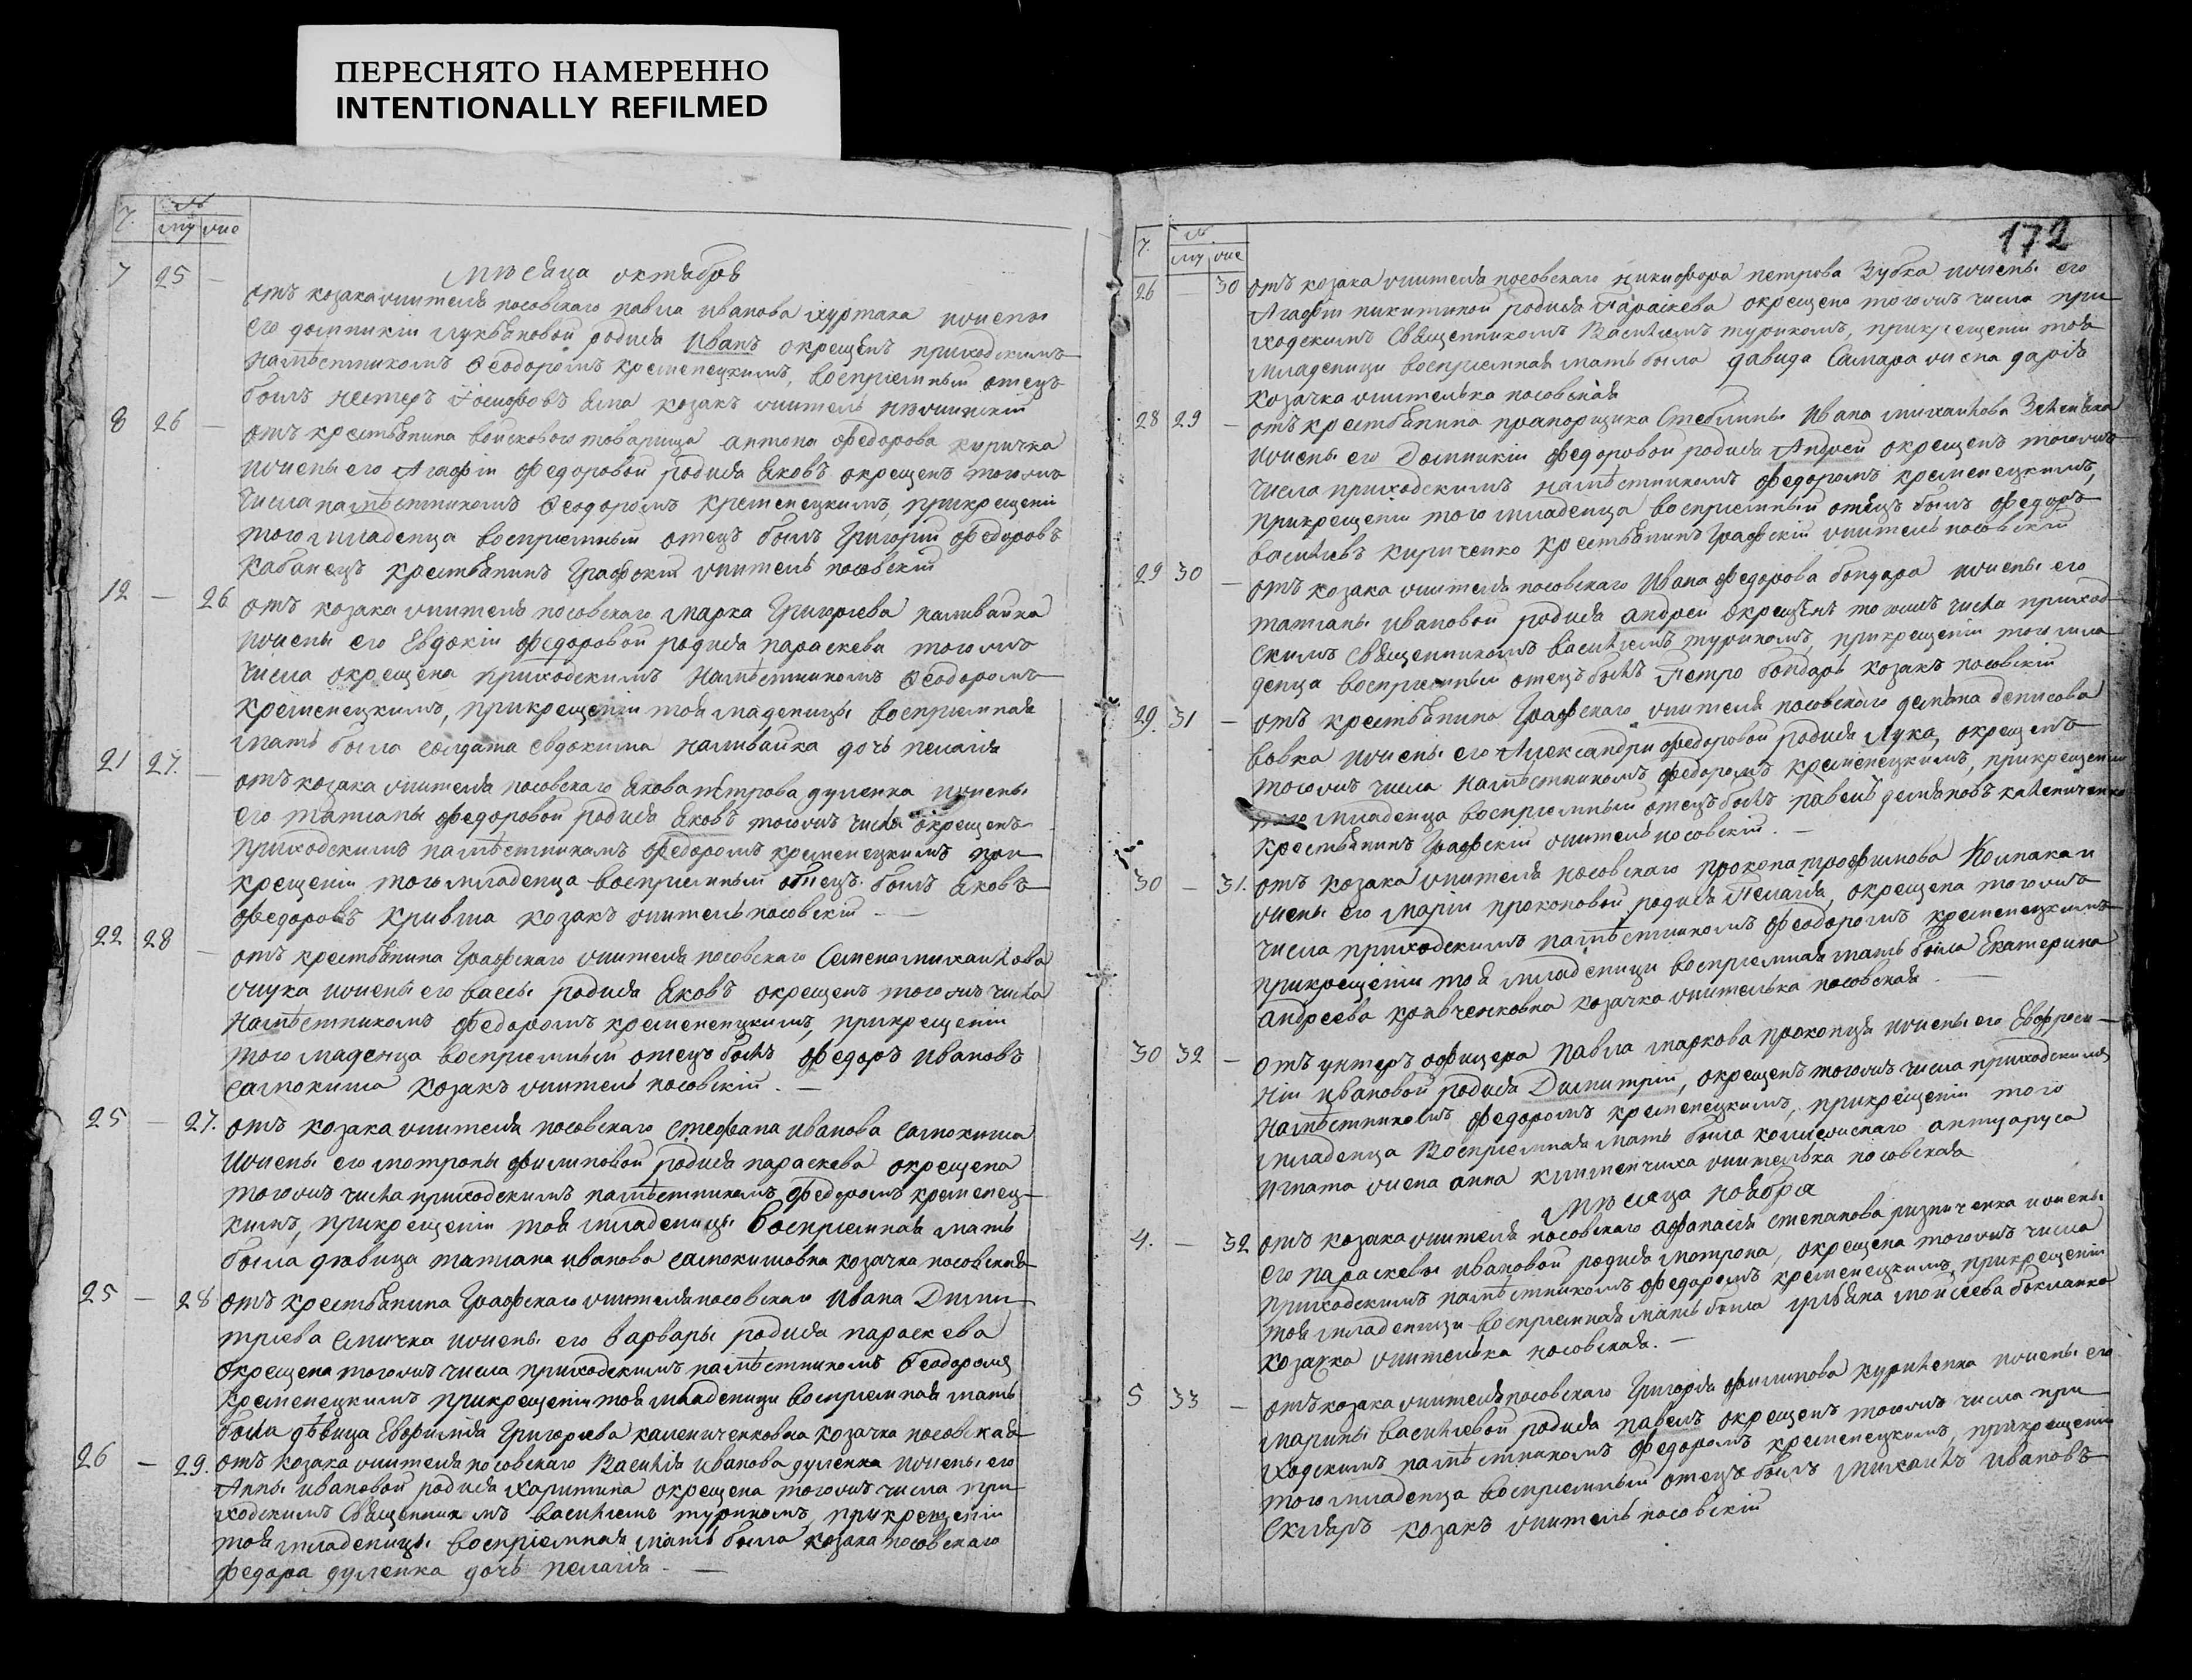 ПЕРЕСНЯТО НАМЕРЕННО
INTENTIONALLY REFILMED
172
Ч. № му же
мѣсяца октября
7 25 — отъ козака жителя носовскаго павла иванова хуртака и жены
его домникіи лукьяновой родися иванъ окрещенъ приходскимъ
намѣстникомъ Ѳеодоромъ кременецкимъ, воспріемный отецъ
былъ нестеръ Іосифовъ козакъ житель нѣжинскій
8 26 — отъ крестьянина войсковаго товарища антона федорова куричка
и жены его Агафіи федоровой родися яковъ окрещенъ тогожъ
числа намѣстникомъ Ѳеодоромъ кременецкимъ, прикрещеніи
того младенца воспріемный отецъ былъ Григорій федоровъ
кабанецъ крестьянинъ Графскій житель носовскій
12 — 26 отъ козака жителя носовскаго марка Григорьева наливайка
и жены его Евдокіи федоровой родися параскева тогожъ
числа окрещена приходскимъ намѣстникомъ Ѳеодоромъ
кременецкимъ, прикрещеніи тоя маденицы воспріемная
мать была солдата евдокима наливайка дочь пелагія
21 27. — отъ козака жителя носовскаго якова петрова дуленка и жены
его татианы федоровой родися яковъ тогожъ числа окрещенъ
приходскимъ намѣстникомъ федоромъ кременецкимъ при
крещеніи того младенца воспріемный отецъ былъ яковъ
федоровъ кривша козакъ житель носовскій —
22 28 — отъ крестьянина Графскаго жителя носовскаго Семена михайлова
жука и жены его вассы родися яковъ окрещенъ тогожъ числа
намѣстникомъ федоромъ кременецкимъ, прикрещеніи
того маденца воспріемный отецъ былъ федоръ ивановъ
самокиша козакъ житель носовскій. —
25 — 27. отъ козака жителя носовскаго стефана иванова самокиша
и жены его мотроны филиповой родися параскева окрещена
тогожъ числа приходскимъ намѣстникомъ федоромъ кременец-
кимъ, прикрещеніи тоя младеницы воспріемная мать
была дѣвица татиана иванова самокишовна козачка носовская
25 — 28 отъ крестьянина Графскаго жителя носовскаго ивана Дими-
тріева смичка и жены его варвары родися параскева
окрещена тогожъ числа приходскимъ намѣстникомъ Ѳеодоромъ
кременецкимъ прикрещеніи тоя младеници воспріемная мать
была дѣвица Евфимія Григорьева калениченковна козачка носовская
26 — 29. отъ козака жителя носовскаго Василія иванова дуленка и жены его
Анны ивановой родися харитина окрещена тогожъ числа при
ходскимъ священникомъ василіемъ туриномъ, прикрещеніи
тоя младеницы воспріемная мать была козака носовскаго
федора дуленка дочь пелагія. —
Ч. № му же
26 30 отъ козака жителя носовскаго никифора петрова Зубка и жены его
Агафіи никитиной родися Параскева окрещена тогожъ числа при
ходскимъ священникомъ Василіемъ туриномъ, прикрещеніи тоя
младеници воспріемная мать была давида Самара жена дарія
козачка жителька носовская
28 29 — отъ крестьянина прапорщика ивана михайлова
и жены его Домникіи федоровой родися Андрей окрещенъ тогожъ
числа приходскимъ намѣстникомъ федоромъ кременецкимъ,
прикрещеніи того младенца воспріемный отецъ былъ федоръ
васильевъ кириченко крестьянинъ Графскій житель носовскій
29 30 — отъ козака жителя носовскаго ивана федорова бондара и жены его
татианы ивановой родися андрей окрещенъ тогожъ числа приход
скимъ священникомъ василіемъ туриномъ, прикрещеніи того мла
денца воспріемный отецъ былъ Петро бондарь козакъ носовскій
29. 31 — отъ крестьянина Графскаго жителя носовскаго демьяна денисова
вовка и жены его Александри федоровой родися лука, окрещенъ
тогожъ числа намѣстникомъ федоромъ кременецкимъ, прикрещеніи
того младенца воспріемный отецъ былъ павелъ демьяновъ калениченко
крестьянинъ Графскій житель носовскій. —
30 — 31. отъ козака жителя носовскаго прокопа трофимова Колпака и
жены его маріи прокоповой родися Пелагія, окрещена тогожъ
числа приходскимъ намѣстникомъ Ѳеодоромъ кременецкимъ
прикрещеніи тоя младеници воспріемная мать была Екатерина
андреева кравченковна козачка жителька носовская. —
30 32 — отъ унтеръ офицера павла маркова прокопця и жены его Евфроси-
ніи ивановой родися Димитрій, окрещенъ тогожъ числа приходскимъ
намѣстникомъ федоромъ кременецкимъ, прикрещеніи того
младенца воспріемная мать была актуаруса
игната жена анна клименчиха жителька носовская
мѣсяца ноября
4. — 32 отъ козака жителя носовскаго афанасія степанова ризниченка и жены
его параскевы ивановой родися мотрона, окрещена тогожъ числа
приходскимъ намѣстникомъ федоромъ кременецкимъ, прикрещеніи
тоя младеници воспріемная мать была ульяна мойсеева
козачка жителька носовская. —
5 33 — отъ козака жителя носовскаго Григорія филипова куриленка и жены его
марины васильевой родися павелъ окрещенъ тогожъ числа при
ходскимъ намѣстникомъ федоромъ кременецкимъ, прикрещеніи
того младенца воспріемный отецъ былъ михаилъ ивановъ
скляръ козакъ житель носовскій